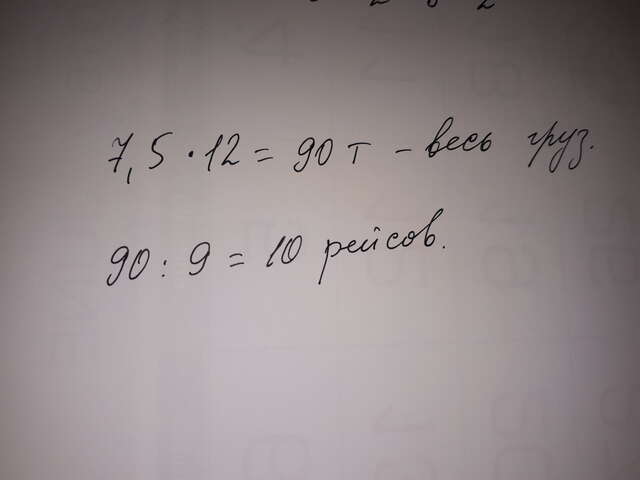 7,5 · 12 = 90 т - весь груз.
90 : 9 = 10 рейсов.